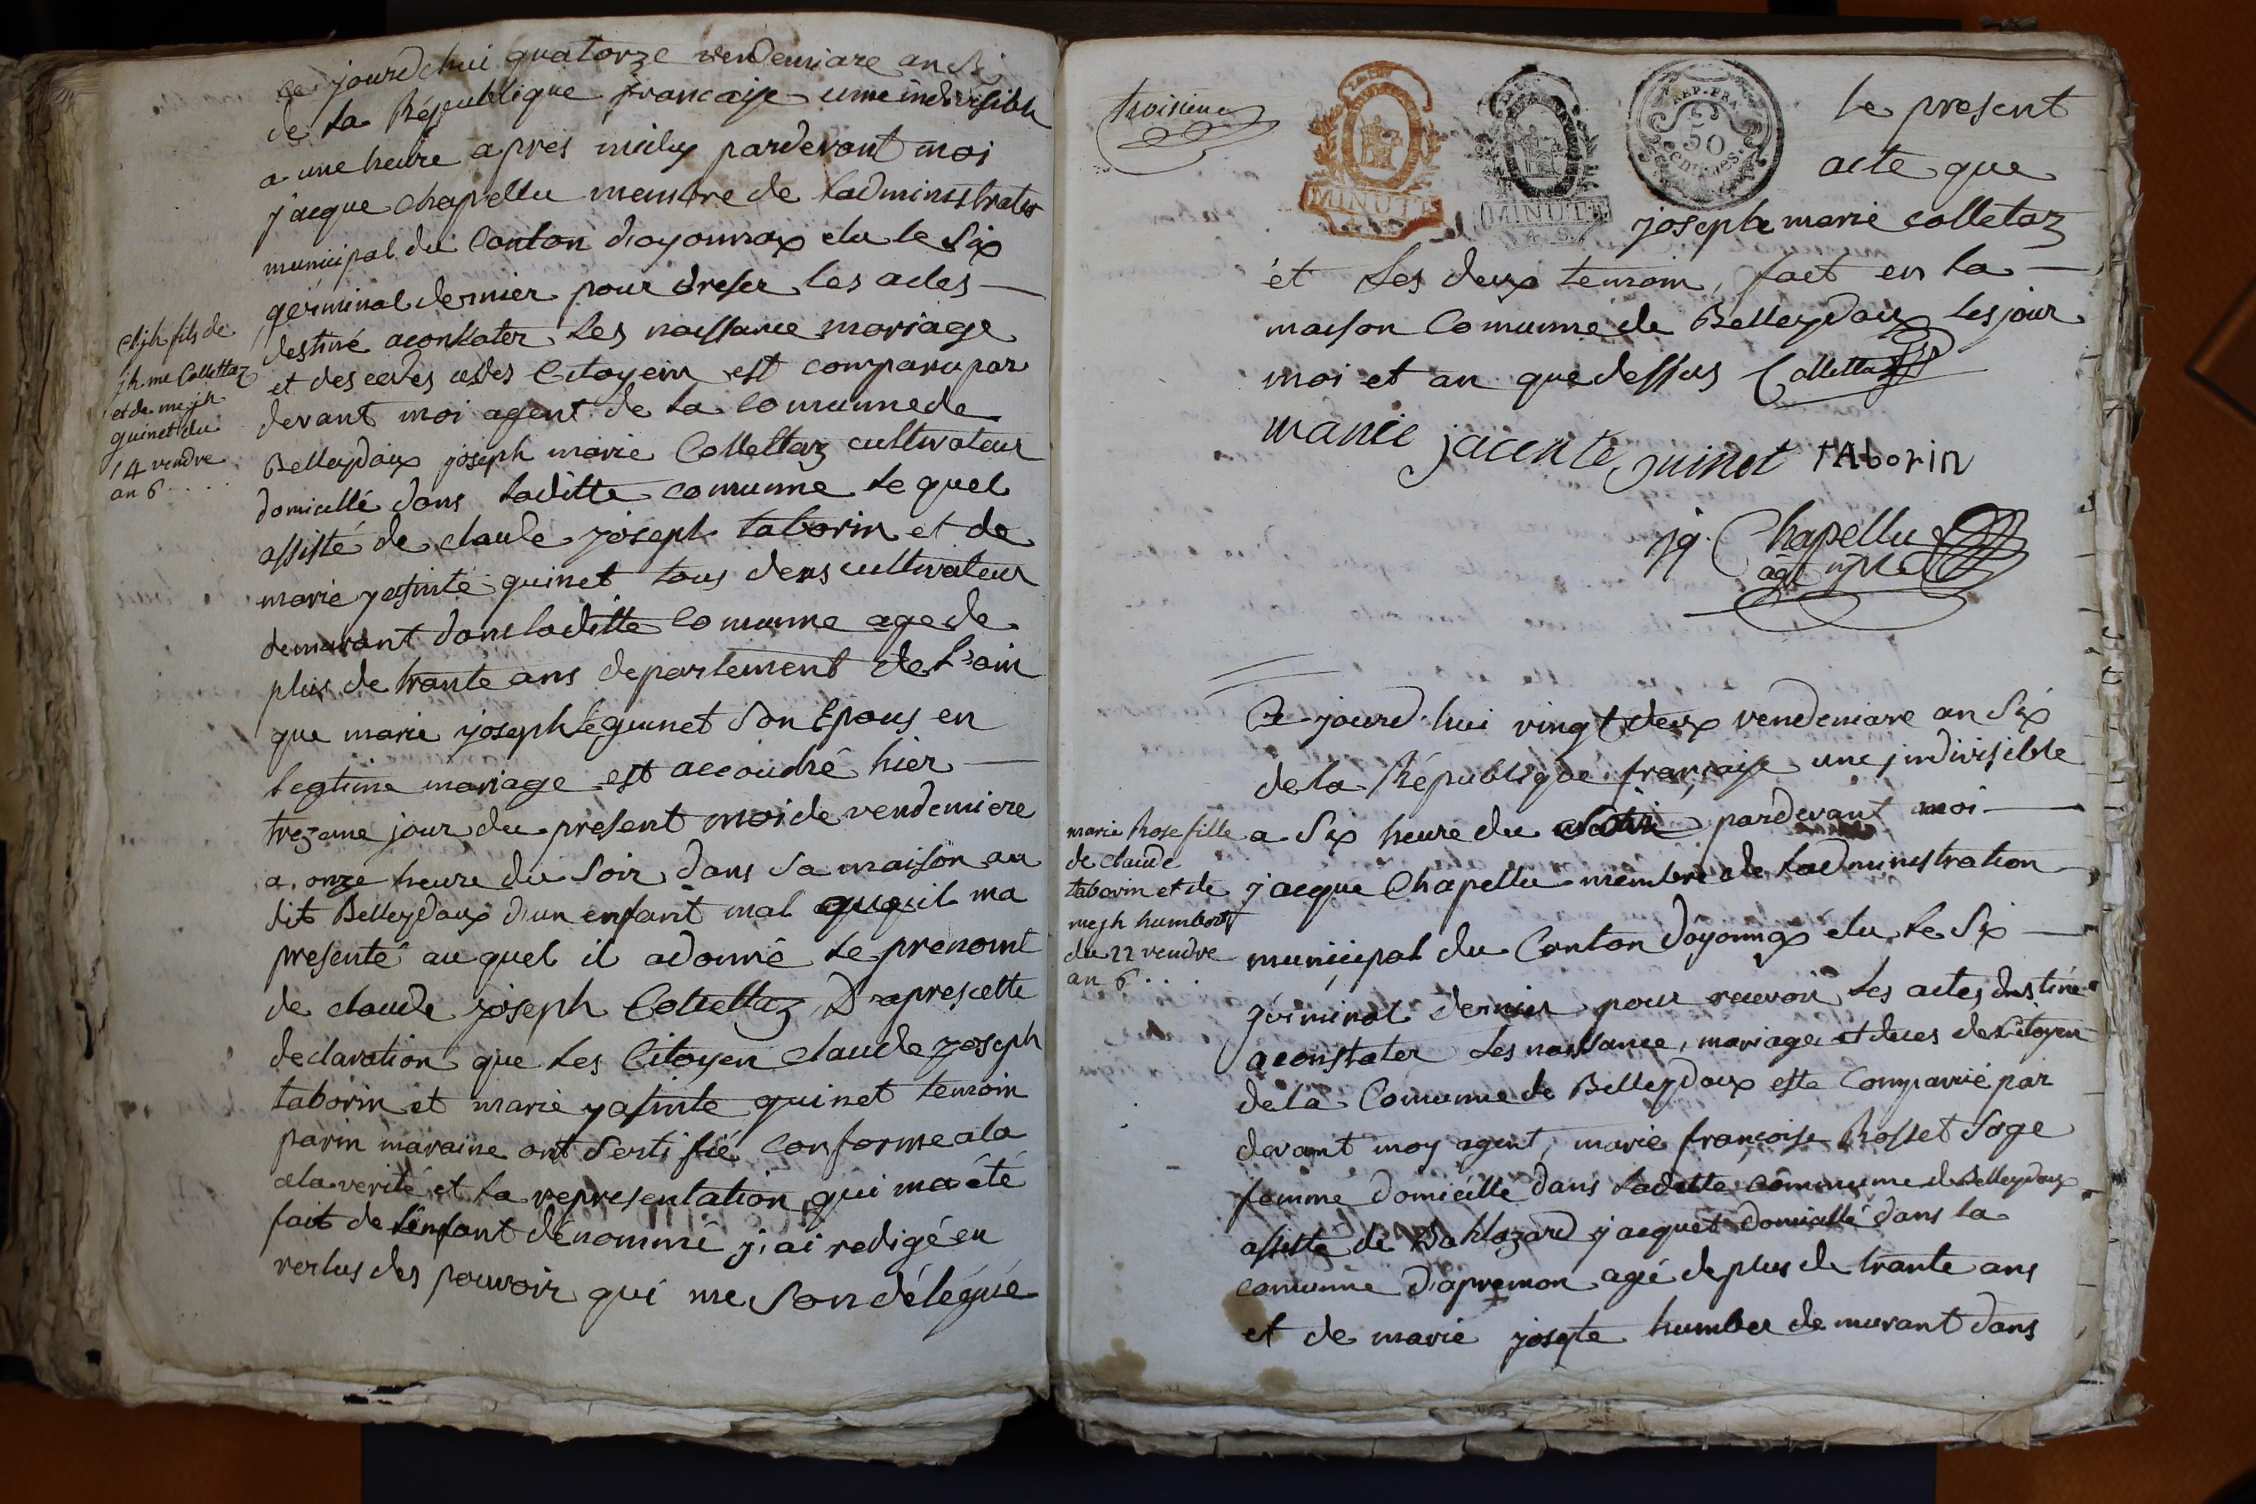 ce jourdhui quatorze vendemiare an six
de la République francaise une indivisible
a une heure apres midy pardevant moi
jacque chapellu membre de ladministrater
municipal du Canton d'oyonnax elu le Six
germinal dernier pour dreser les actes
destiné aconstater les naissance mariage
et des ecdes Citoyein est comparu par
devant moi agent de la comunne de
Belleydoux joseph marie Collettaz cultivateur
domicellé dans laditte comunne le quel
assisté de claude joseph taborin et de
marie yasinte guinet tous deus cultivateur
demurant dans laditte Comunne age de
plus de trante ans departement de L'ain
que marie josephte guinet Son Epous en
legtime mariage est accouché hier
trezeme jour du present moi de vendemiere
a onze heure du Soir dans Sa maison au
dit Belleydoux d'un enfant mal quil ma
presenté auquel il adonné le prenomt
de claude joseph Collettaz D'apres cette
declaration que les Citoyen claude joseph
taborin et marie yasinte guinet temoin
parin maraine ont Sertifié conforme ala
ala verité et la representation qui ma été
fait de l'enfant dénommé j'ai redigé en
vertus des pouvoir qui me Son délégué
cl jh fils de
jh me Collettaz
et de me jh
guinet du
14 vendre
an 6
troisieme
MINUTE
MINUTE
REP. FRA.
50
centimes.
le present
acte que
joseph marie colletaz
et les deux temoin, fait en la
maison Comunne de Belleydoux les jour
moi et an que dessus Colletta
marie jacente guinet tAborin
jq. Chapellu
agt
Ce jourd'hui vingt deux vendemiare an Six
de la République française une indivisible
a Six heure du pardevant moi
jacque Chapellu membre de ladministration
municipal du Canton d'oyonnax elu le Six
gérminal dernier pour recevoir les actes destiné
aconstater les naissance, mariage et deces des Citoyen
de la Comunne de Belleydoux este Comparrie par
devant moy agent, marie francoise Rosset Sage
femme domicillé dans laditte commune de Belleydoux
assisté de Baltazard jacquet domicillé dans la
comunne d'apremon agé de plus de trante ans
et de marie josepte humber demurant dans
marie Rose fille
de claude
taborin et de
me jh humbert
du 22 vendre
an 6